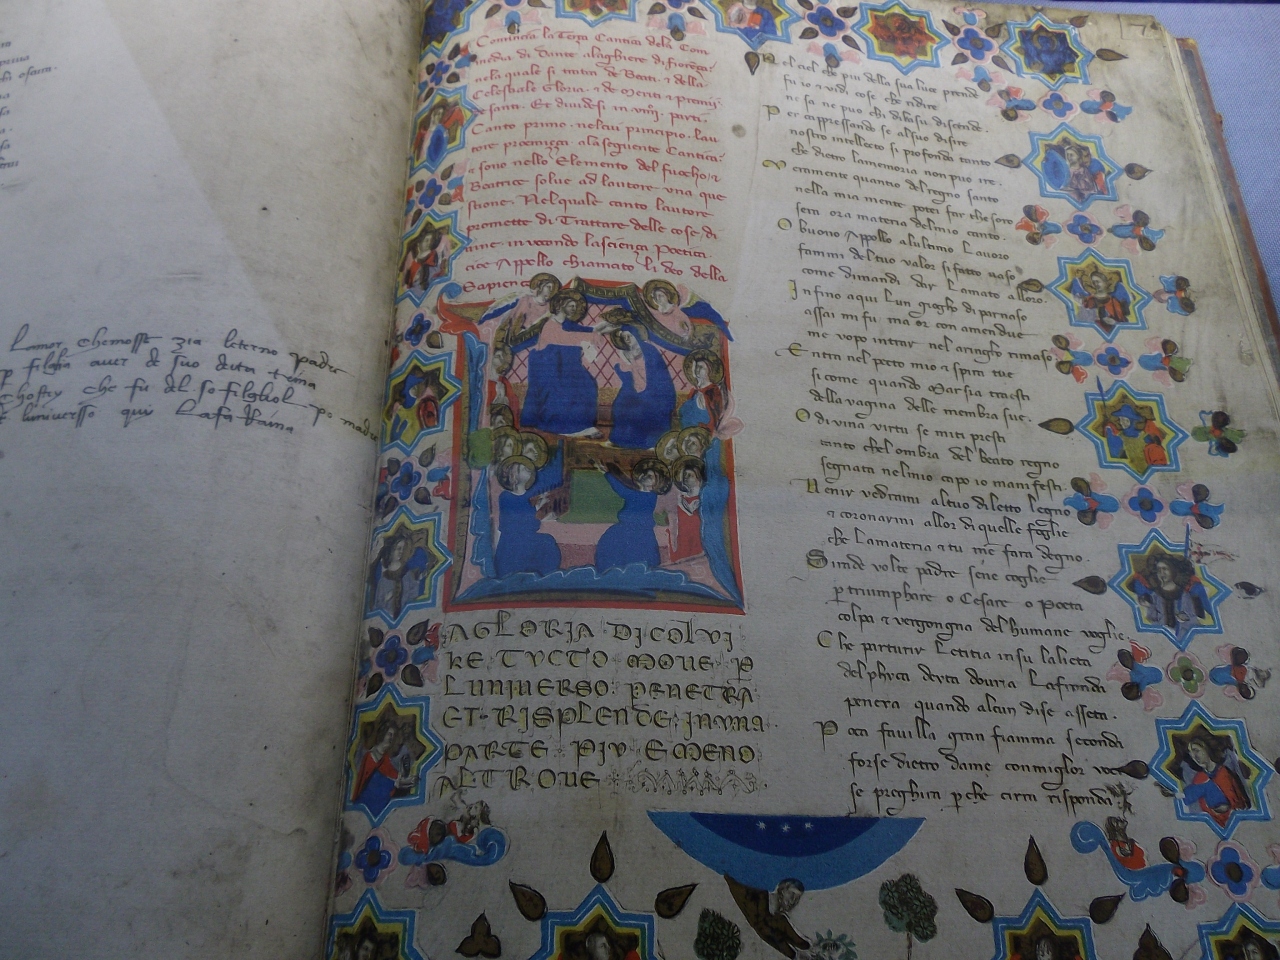 Lamor chemosse zia leterno padre
p figlia auer de suo deita
che fu del so figliol
luniversso qui
Comincia la Terça Cantica dela Com
media di Dante alaghiere di fiorença
nela quale si tratta de Beati τ della
Celestiale Gloria τ de meriti τ premii
de santi. Et dividesi in viiij parti.
Canto primo nelcui principio lau
tore proemiça ala seguente Cantica
τ sono nello Elemento del fuocho τ
Beatrice solve ad lautore una que
stione. Nelquale canto lautore
promette di Trattare delle cose di
uine inuocando lasciença Poetica
cioe Appollo chiamato li deo della
Sapiença
LAGLORIA DICOLVI
KE TVCTO MOVE P
LUNIUERSO PENETRA
ET RISPLENDE INVNA
PARTE PIV E MENO
ALTROUE
Nel ciel che piu della sua luce prende
fu io τ uidi cose che ridire
ne sa ne puo chi dilasu discende.
Per cappressando se alsuo disire
nostro intellecto si profonda tanto
che dietro lamemoria non puo ire.
Veramente quanto del regno santo
nella mia mente potei far thesoro
sera ora materia delmio canto.
O buono Appollo alultimo Lauoro
fammi deltuo ualor si fatto uaso
come dimandi dar Lamato alloro.
Infino aqui Lun giogho di parnaso
assai mi fu ma or con amendue
me uopo intrar nel aringho rimaso
Entra nel petto mio τ spira tue
si come quando Marsia traesti
della uagina delle membra sue.
O diuina uirtu se mi ti presti
tanto chel ombra del beato regno
segnata nelmio capo io manifesti.
Uenir uedrami altuo diletto legno
τ coronarmi allor di quelle foglie
che Lamateria τ tu me fara degno.
Si rade uolte padre sene coglie
p triumphare o Cesare o Poeta
colpa τ uergongna del humane uoglie
Che parturir Letitia insu lalieta
delphyca deyta douria Lafronda
peneia quando alcun dise asseta.
Poca fauilla gran fiamma seconda
forse dietro dame conmiglor uoci
se preghera p che cirra risponda